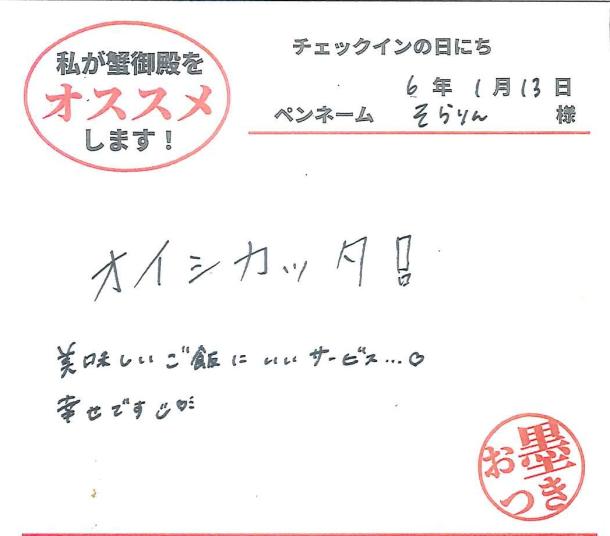 私が蟹御殿を
オススメ
します！
チェックインの日にち
6年1月13日
ペンネーム そらりん 様
オイシカッタ!
美味しいご飯にいいサービス...♡
幸せです
お墨
つき